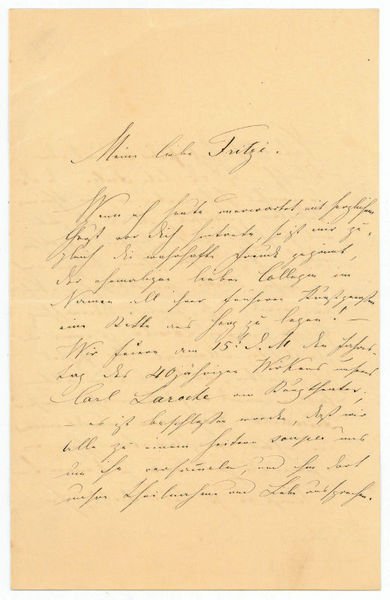 Meine liebe Fritzi.
Wenn ich heute unerwartet, mit herzlichem
Gruß vor Dich hintrete, so ist mir zu-
gleich die wahrhafte Freude gegönnt,
der ehemaligen lieben Collegin im
Namen all ihrer früheren Kunstgenossen
eine Bitte ans Herz zu legen. —
Wir feiern am 15t. d. M den Jahres-
tag des 40jährigen Wirkens unsers
Carl Laroche am Burgtheater;
— es ist beschlossen worden, daß wir
Alle zu einem heitern souper uns
um ihn versammeln, und ihm dort
unsre Theilnahme und Liebe aussprechen.